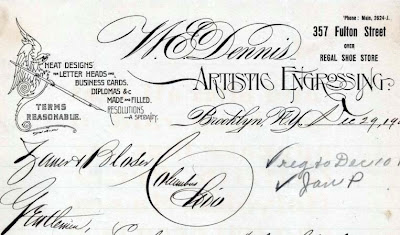 'Phone: Main, 2624-J.
357 Fulton Street
OVER
REGAL SHOE STORE
W. E. Dennis
ARTISTIC ENGROSSING.
NEAT DESIGNS
FOR LETTER HEADS
BUSINESS CARDS,
DIPLOMAS &c
MADE AND FILLED.
RESOLUTIONS
A SPECIALTY.
TERMS
REASONABLE.
Brooklyn, N.Y. Dec 29, 19
Zaner & Bloser
Columbus
Ohio
Gentlemen,